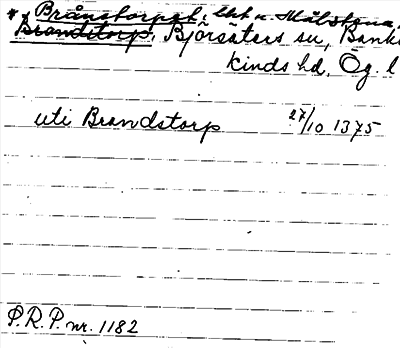 * Brånstorpet, lht u. Målstena,
Brandstorp, Björsäters sn, Bank
kinds hd, Ög. l
uti Brandstorp 27/10 1375
P.R.P. nr. 1182